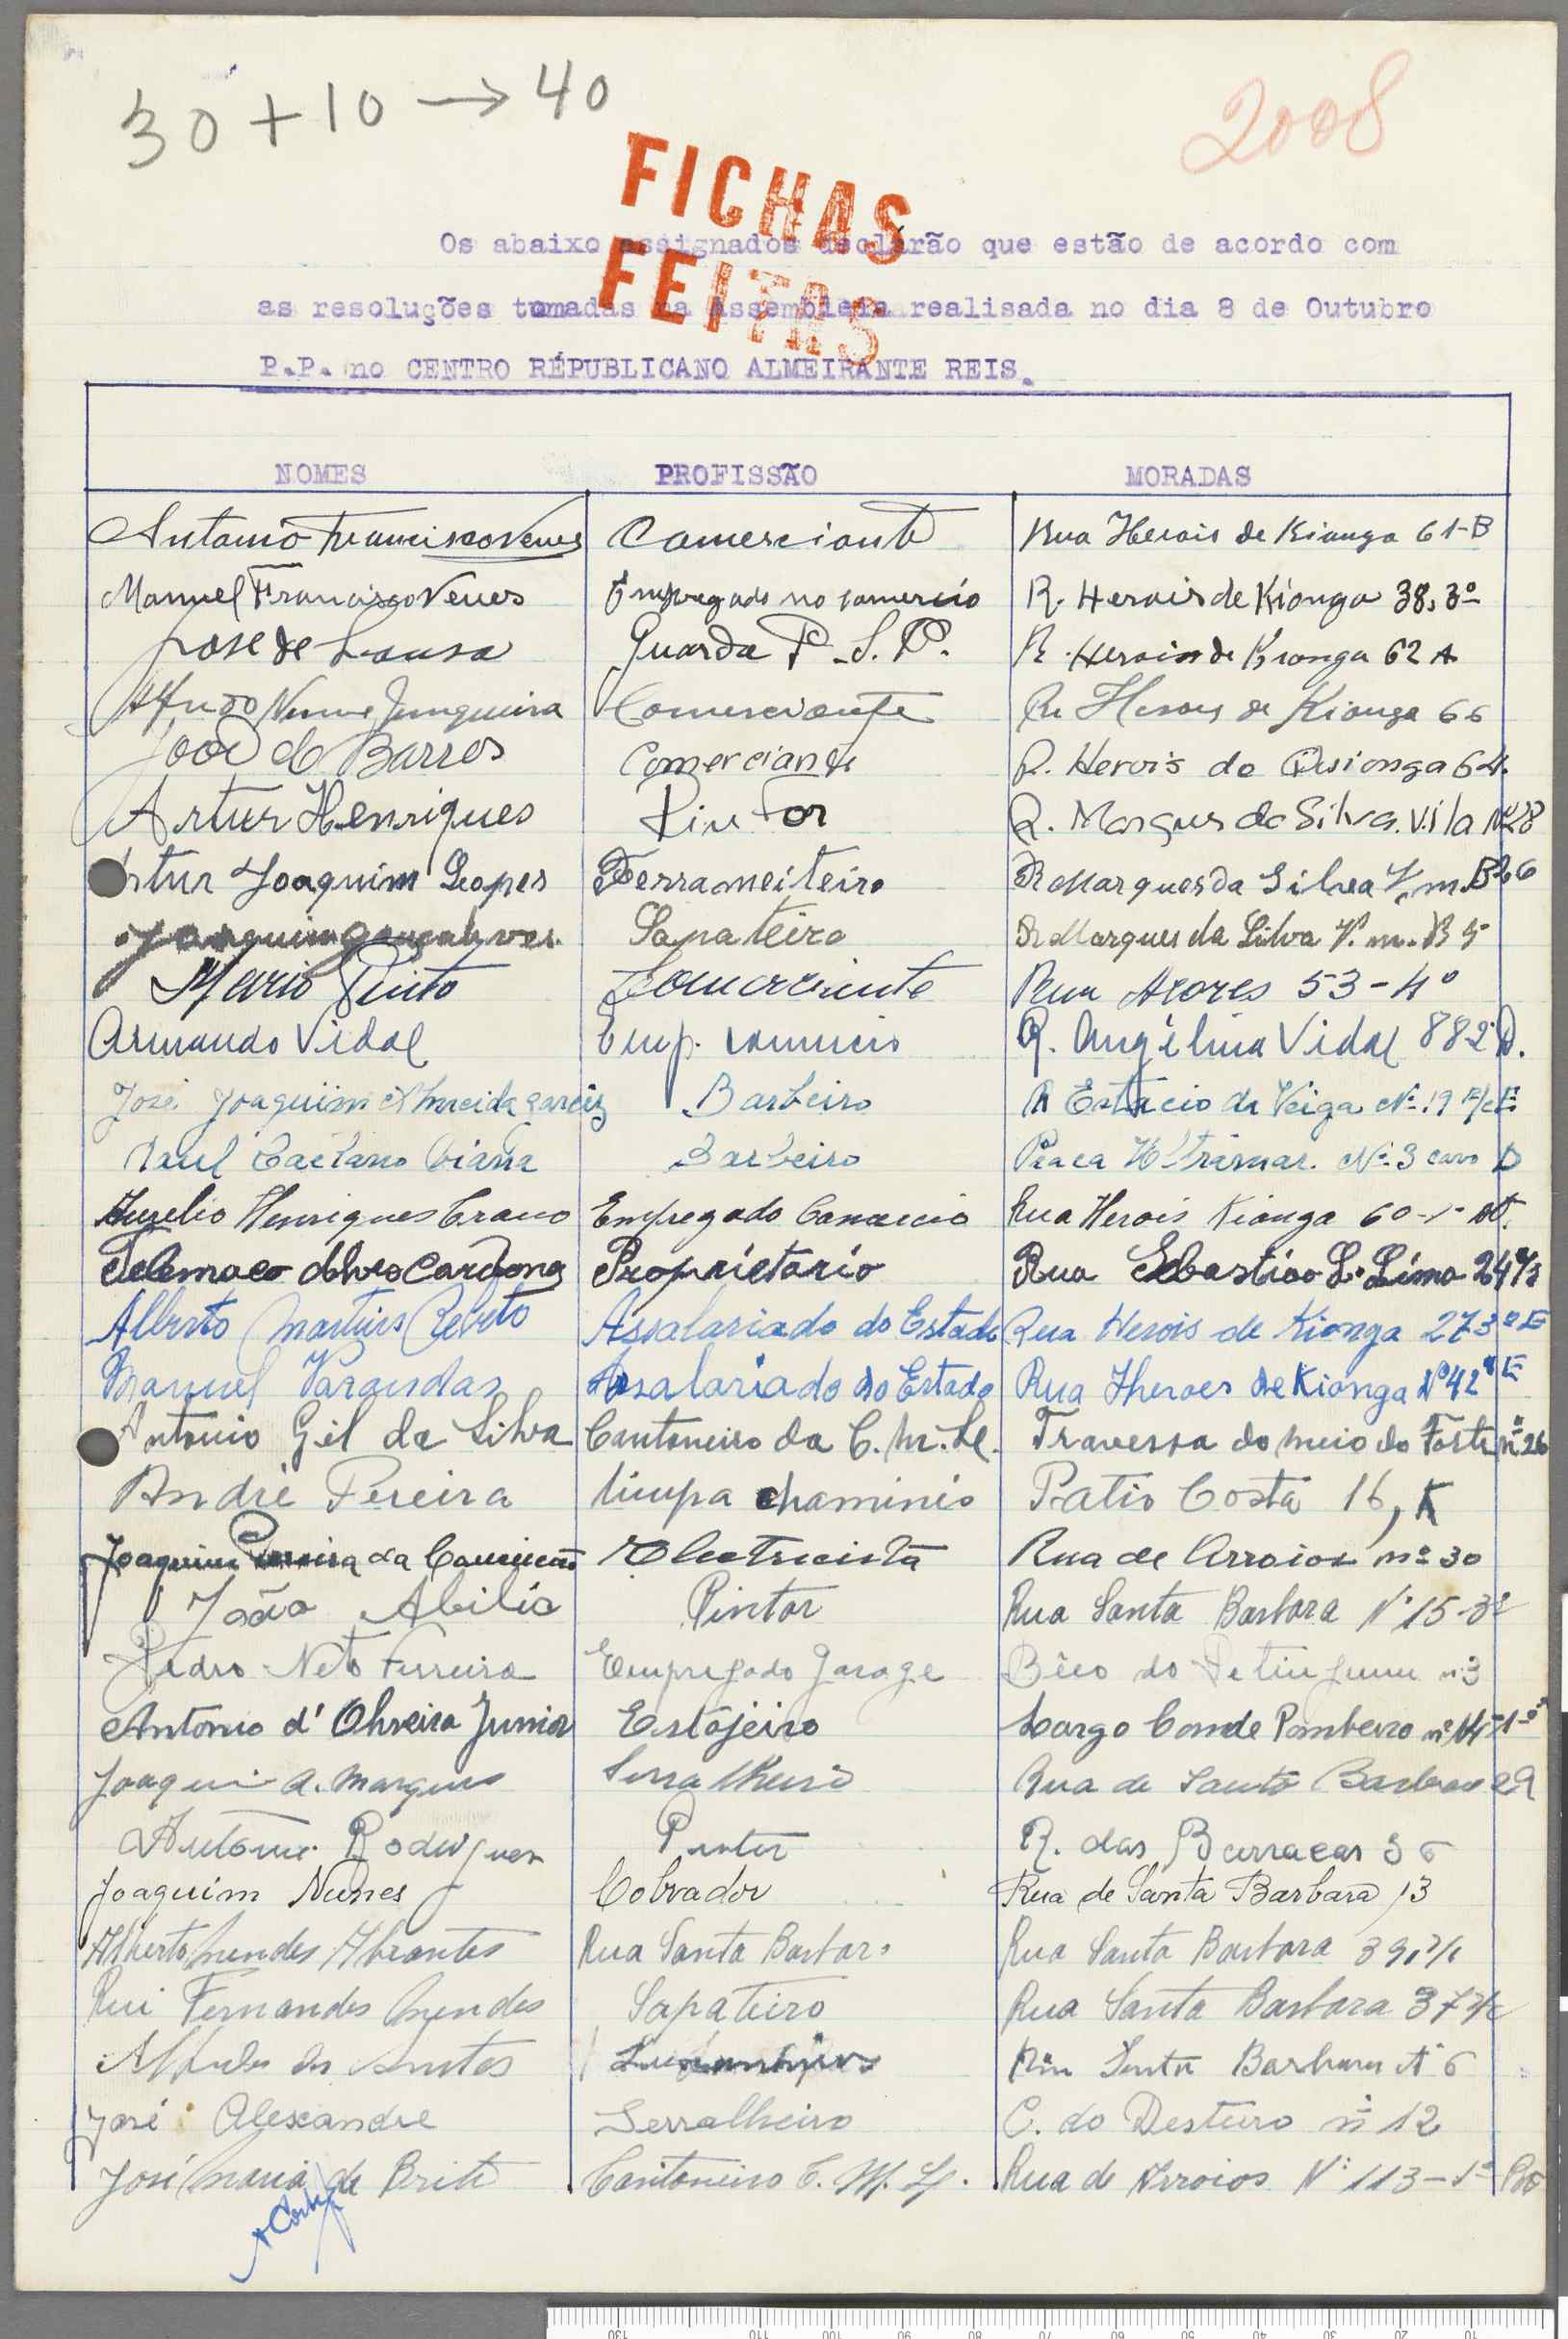 30 + 10 → 40
2008
FICHAS
FEITAS
Os abaixo assignados declárão que estão de acordo com
as resoluções tomadas na Assembleia realisada no dia 8 de Outubro
P.P. no CENTRO RÉPUBLICANO ALMEIRANTE REIS.
NOMES PROFISSÃO MORADAS
Antonio Francisco Neves Comerciante Rua Herois de Kionga 61-B
Manuel Francisco Neves Empregado no comercio R. Herois de Kionga 38, 3º
Jose de Sousa Guarda P.S.P. R. Herois de Kionga 62 A
Nunes Junqueira Comerciante R. Herois de Kionga 66
João de Barros Comerciante R. Herois de Quionga 64.
Artur Henriques Pintor R. Marques da Silva. Vila
Artur Joaquim Lopes Ferramenteiro R Marques da Silva V. m. B 26
Joaquim Gonçalves Sapateiro R Marques da Silva V. m. B 5
Mario Pinto Comerciante Rua Açores 53-4º
Armando Vidal Emp. comercio R. Angelina Vidal 88 2º D.
José Joaquim Almeida Garcia Barbeiro R Estacio da Veiga Nº 19 R/c E
Raul Caetano Viana Barbeiro Praca Nº 3 cave D
Aurelio Henriques Empregado Comercio Rua Herois Kionga 60-1º
Telemaco Alves Cardona Proprietario Rua Sebastião S. Lima 24
Alberto Martins Rebelo Assalariado do Estado Rua Herois de Kionga 27 3º E
Manuel Varandas Assalariado do Estado Rua Heroes de Kionga Nº 42
Antonio Gil da Silva Cantoneiro da C. M. L. Travessa do meio do Forte nº 26
André Pereira limpa chaminés Patio Costa 16, K
Joaquim Pereira da Conceição Electricista Rua de Arroios nº 30
João Abilio Pintor Rua Santa Barbara Nº 15-3º
Pedro Neto Ferreira Empregado Garage Bêco do nº 3
Antonio d'Oliveira Junior Estojeiro Largo Conde Pombeiro nº 14-1º
Joaquim A. Marques Serralheiro Rua de Santa Barbara 29
Antonio Rodrigues Pintor R. das Barracas 36
Joaquim Nunes Cobrador Rua de Santa Barbara 13
Alberto Mendes Abrantes Rua Santa Barbara Rua Santa Barbara 39, r/c
Rui Fernandes Mendes Sapateiro Rua Santa Barbara 37 r/c
Alfredo dos Santos Rua Santa Barbara Nº 6
José Alexandre Serralheiro C. do Desterro nº 12
José Maria de Brito Cantoneiro C. M. L. Rua de Arroios Nº 113-1º